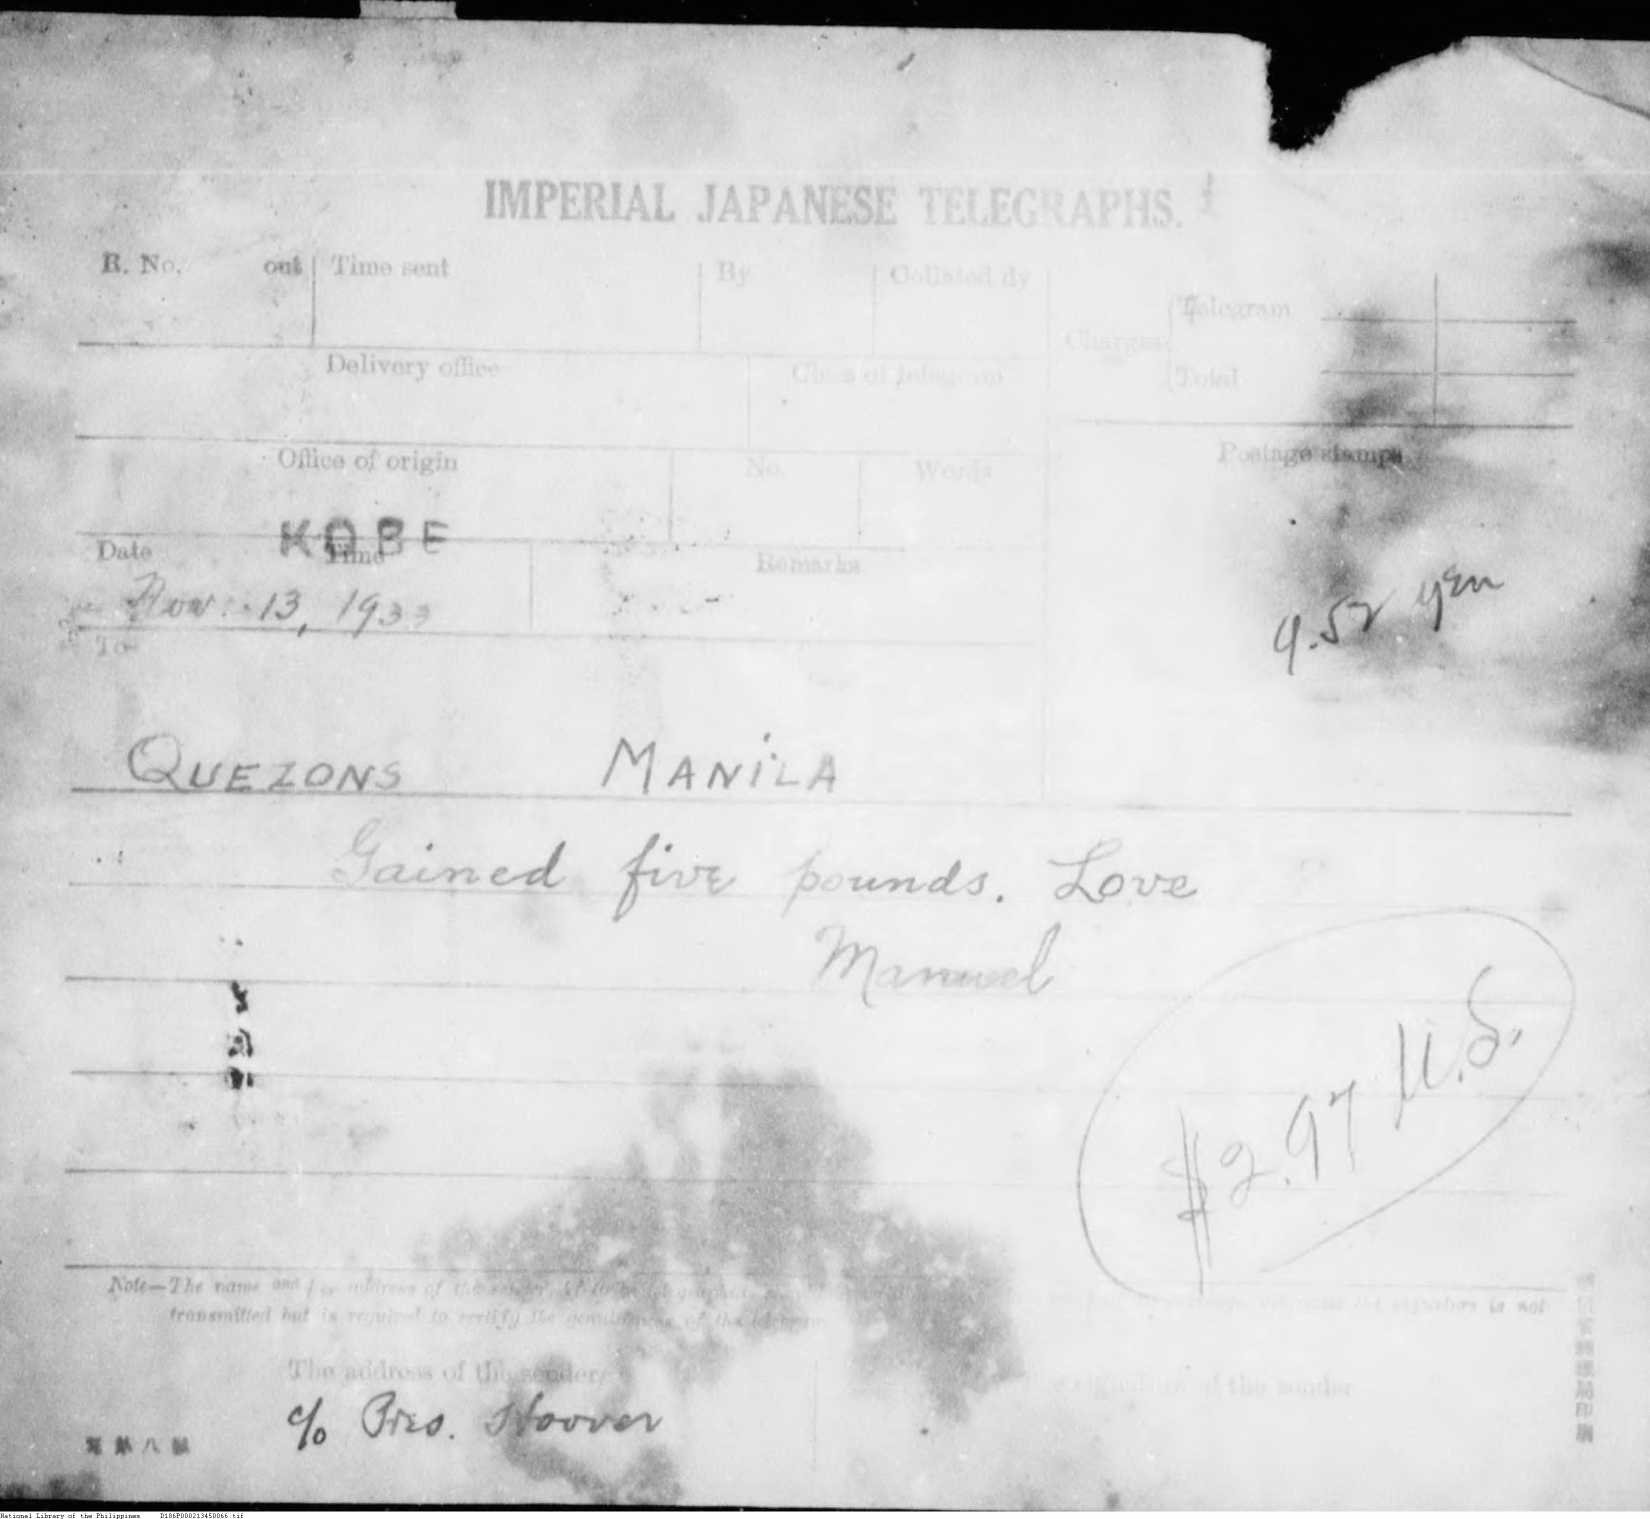 IMPERIAL JAPANESE TELEGRAPHS.
R. No. out Time sent By Collated by
Charges Telegram
Total
Delivery office Class of telegram
Office of origin No. Words Postage stamps
KOBE
Date Time Remarks
Nov. 13, 1933
9.52 yen
To
QUEZONS MANILA
Gained five pounds. Love
Manuel
$2.97 U.S.
Note—The name and / or address of the sender, the signature is not
transmitted but is required to certify the genuineness of the telegram
The address of the sender signature of the sender
c/o Pres. Hoover
National Library of the Philippines D186P000213450066.tif